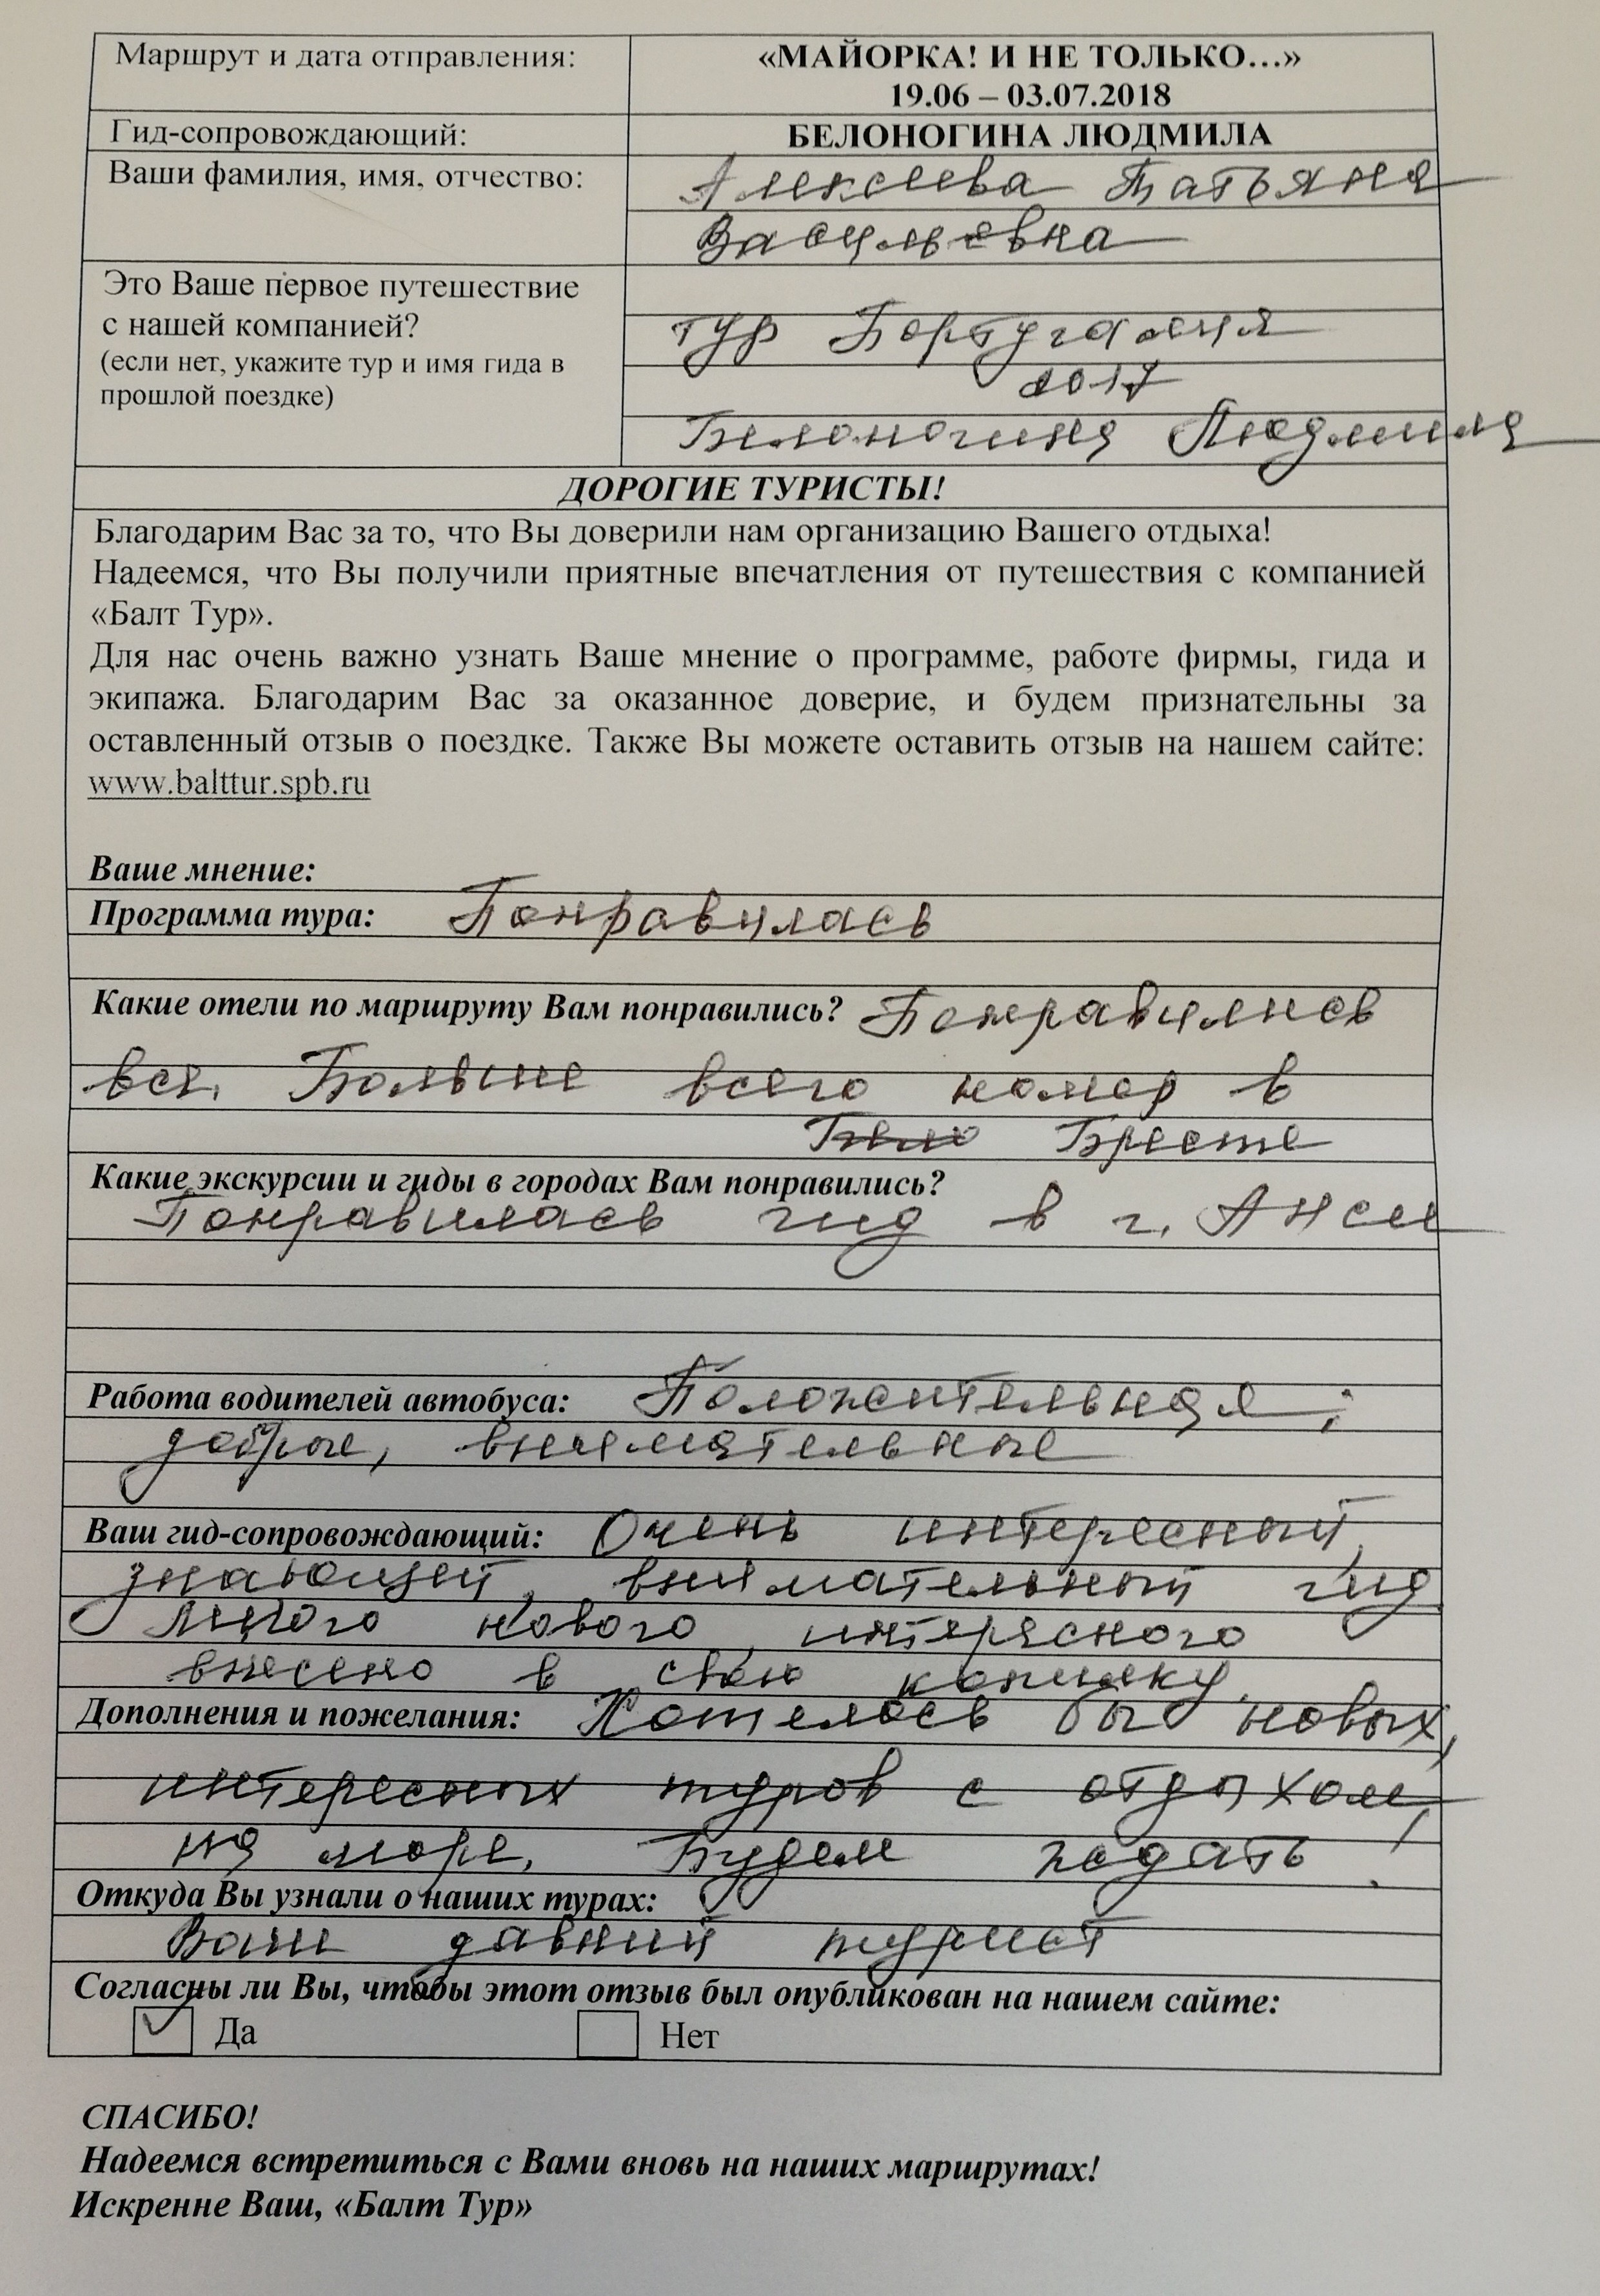 Маршрут и дата отправления:
«МАЙОРКА! И НЕ ТОЛЬКО...»
19.06 – 03.07.2018
Гид-сопровождающий:
БЕЛОНОГИНА ЛЮДМИЛА
Ваши фамилия, имя, отчество:
Алексеева Татьяна
Васильевна
Это Ваше первое путешествие
с нашей компанией?
(если нет, укажите тур и имя гида в
прошлой поездке)
тур Португалия
2017
Белоногина Людмила
ДОРОГИЕ ТУРИСТЫ!
Благодарим Вас за то, что Вы доверили нам организацию Вашего отдыха!
Надеемся, что Вы получили приятные впечатления от путешествия с компанией
«Балт Тур».
Для нас очень важно узнать Ваше мнение о программе, работе фирмы, гида и
экипажа. Благодарим Вас за оказанное доверие, и будем признательны за
оставленный отзыв о поездке. Также Вы можете оставить отзыв на нашем сайте:
www.balttur.spb.ru
Ваше мнение:
Программа тура: Понравилась
Какие отели по маршруту Вам понравились? Понравились
все. Больше всего номер в
Бресте
Какие экскурсии и гиды в городах Вам понравились?
Понравилась гид в г. Анси
Работа водителей автобуса: Положительная;
добрые, внимательные
Ваш гид-сопровождающий: Очень интересный,
знающий, внимательный гид
Много нового, интересного
внесено в свою копилку.
Дополнения и пожелания: Хотелось бы новых,
интересных туров с отдыхом
на море. Будем ждать!
Откуда Вы узнали о наших турах:
Ваш давний турист
Согласны ли Вы, чтобы этот отзыв был опубликован на нашем сайте:
Да Нет
СПАСИБО!
Надеемся встретиться с Вами вновь на наших маршрутах!
Искренне Ваш, «Балт Тур»